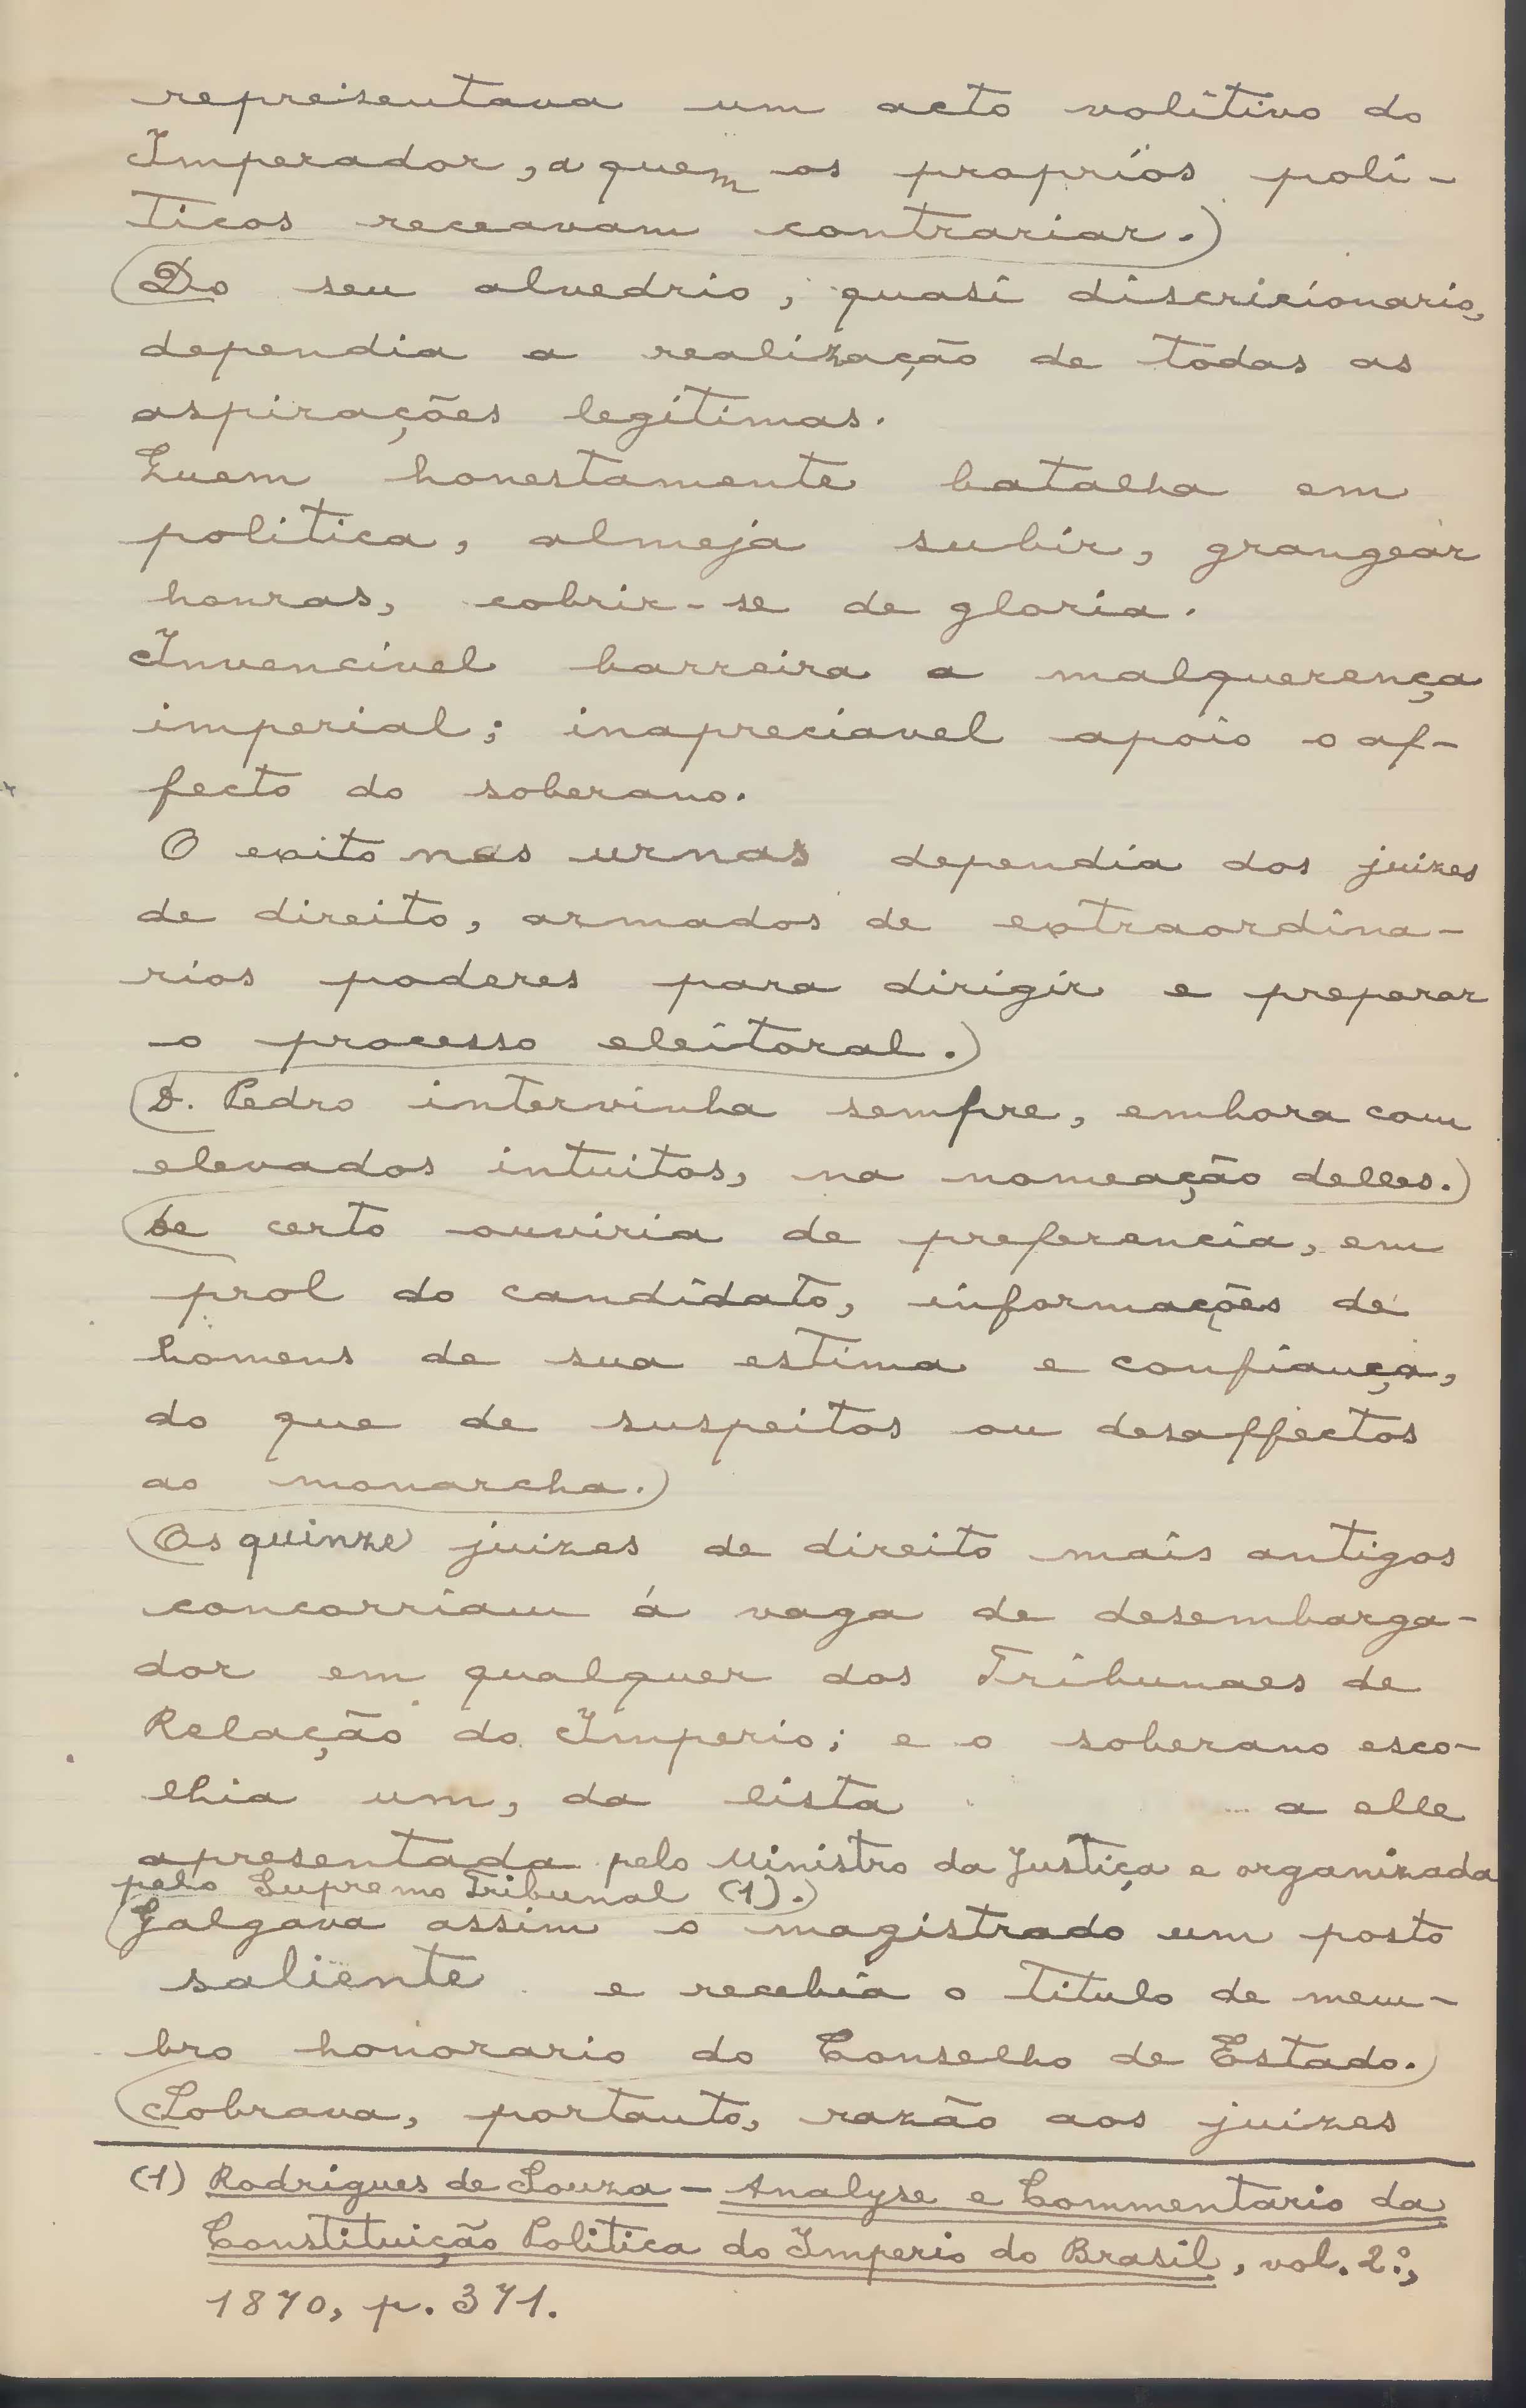 representava um acto volitivo do
Imperador, a quem os proprios poli-
ticos receavam contrariar.)
(Do seu alvedrio, quasi discricionario,
dependia a realização de todas as
aspirações legitimas.
Quem honestamente batalha em
politica, almeja subir, grangear
honras, cobrir-se de gloria.
Invencivel barreira a malquerença
imperial; inapreciavel apoio o af-
fecto do soberano.
O exito nas urnas dependia dos juizes
de direito, armados de extraordina-
rios poderes para dirigir e preparar
o processo eleitoral.)
(D. Pedro intervinha sempre, embora com
elevados intuitos, na nomeação delles.)
(De certo ouviria de preferencia, em
prol do candidato, informações de
homens de sua estima e confiança,
do que de suspeitos ou desaffectos
ao monarcha.)
(Os quinze juizes de direito mais antigos
concorriam á vaga de desembarga-
dor em qualquer dos Tribunaes de
Relação do Imperio; e o soberano esco-
lhia um, da lista a elle
apresentada pelo Ministro da Justiça e organizada
pelo Supremo Tribunal (1).)
(Galgava assim o magistrado um posto
saliente e recebia o titulo de mem-
bro honorario do Conselho de Estado.)
(Sobrava, portanto, razão aos juizes
(1) Rodrigues de Souza - Analyse e Commentario da
Constituição Politica do Imperio do Brasil, vol. 2.º,
1870, p. 371.